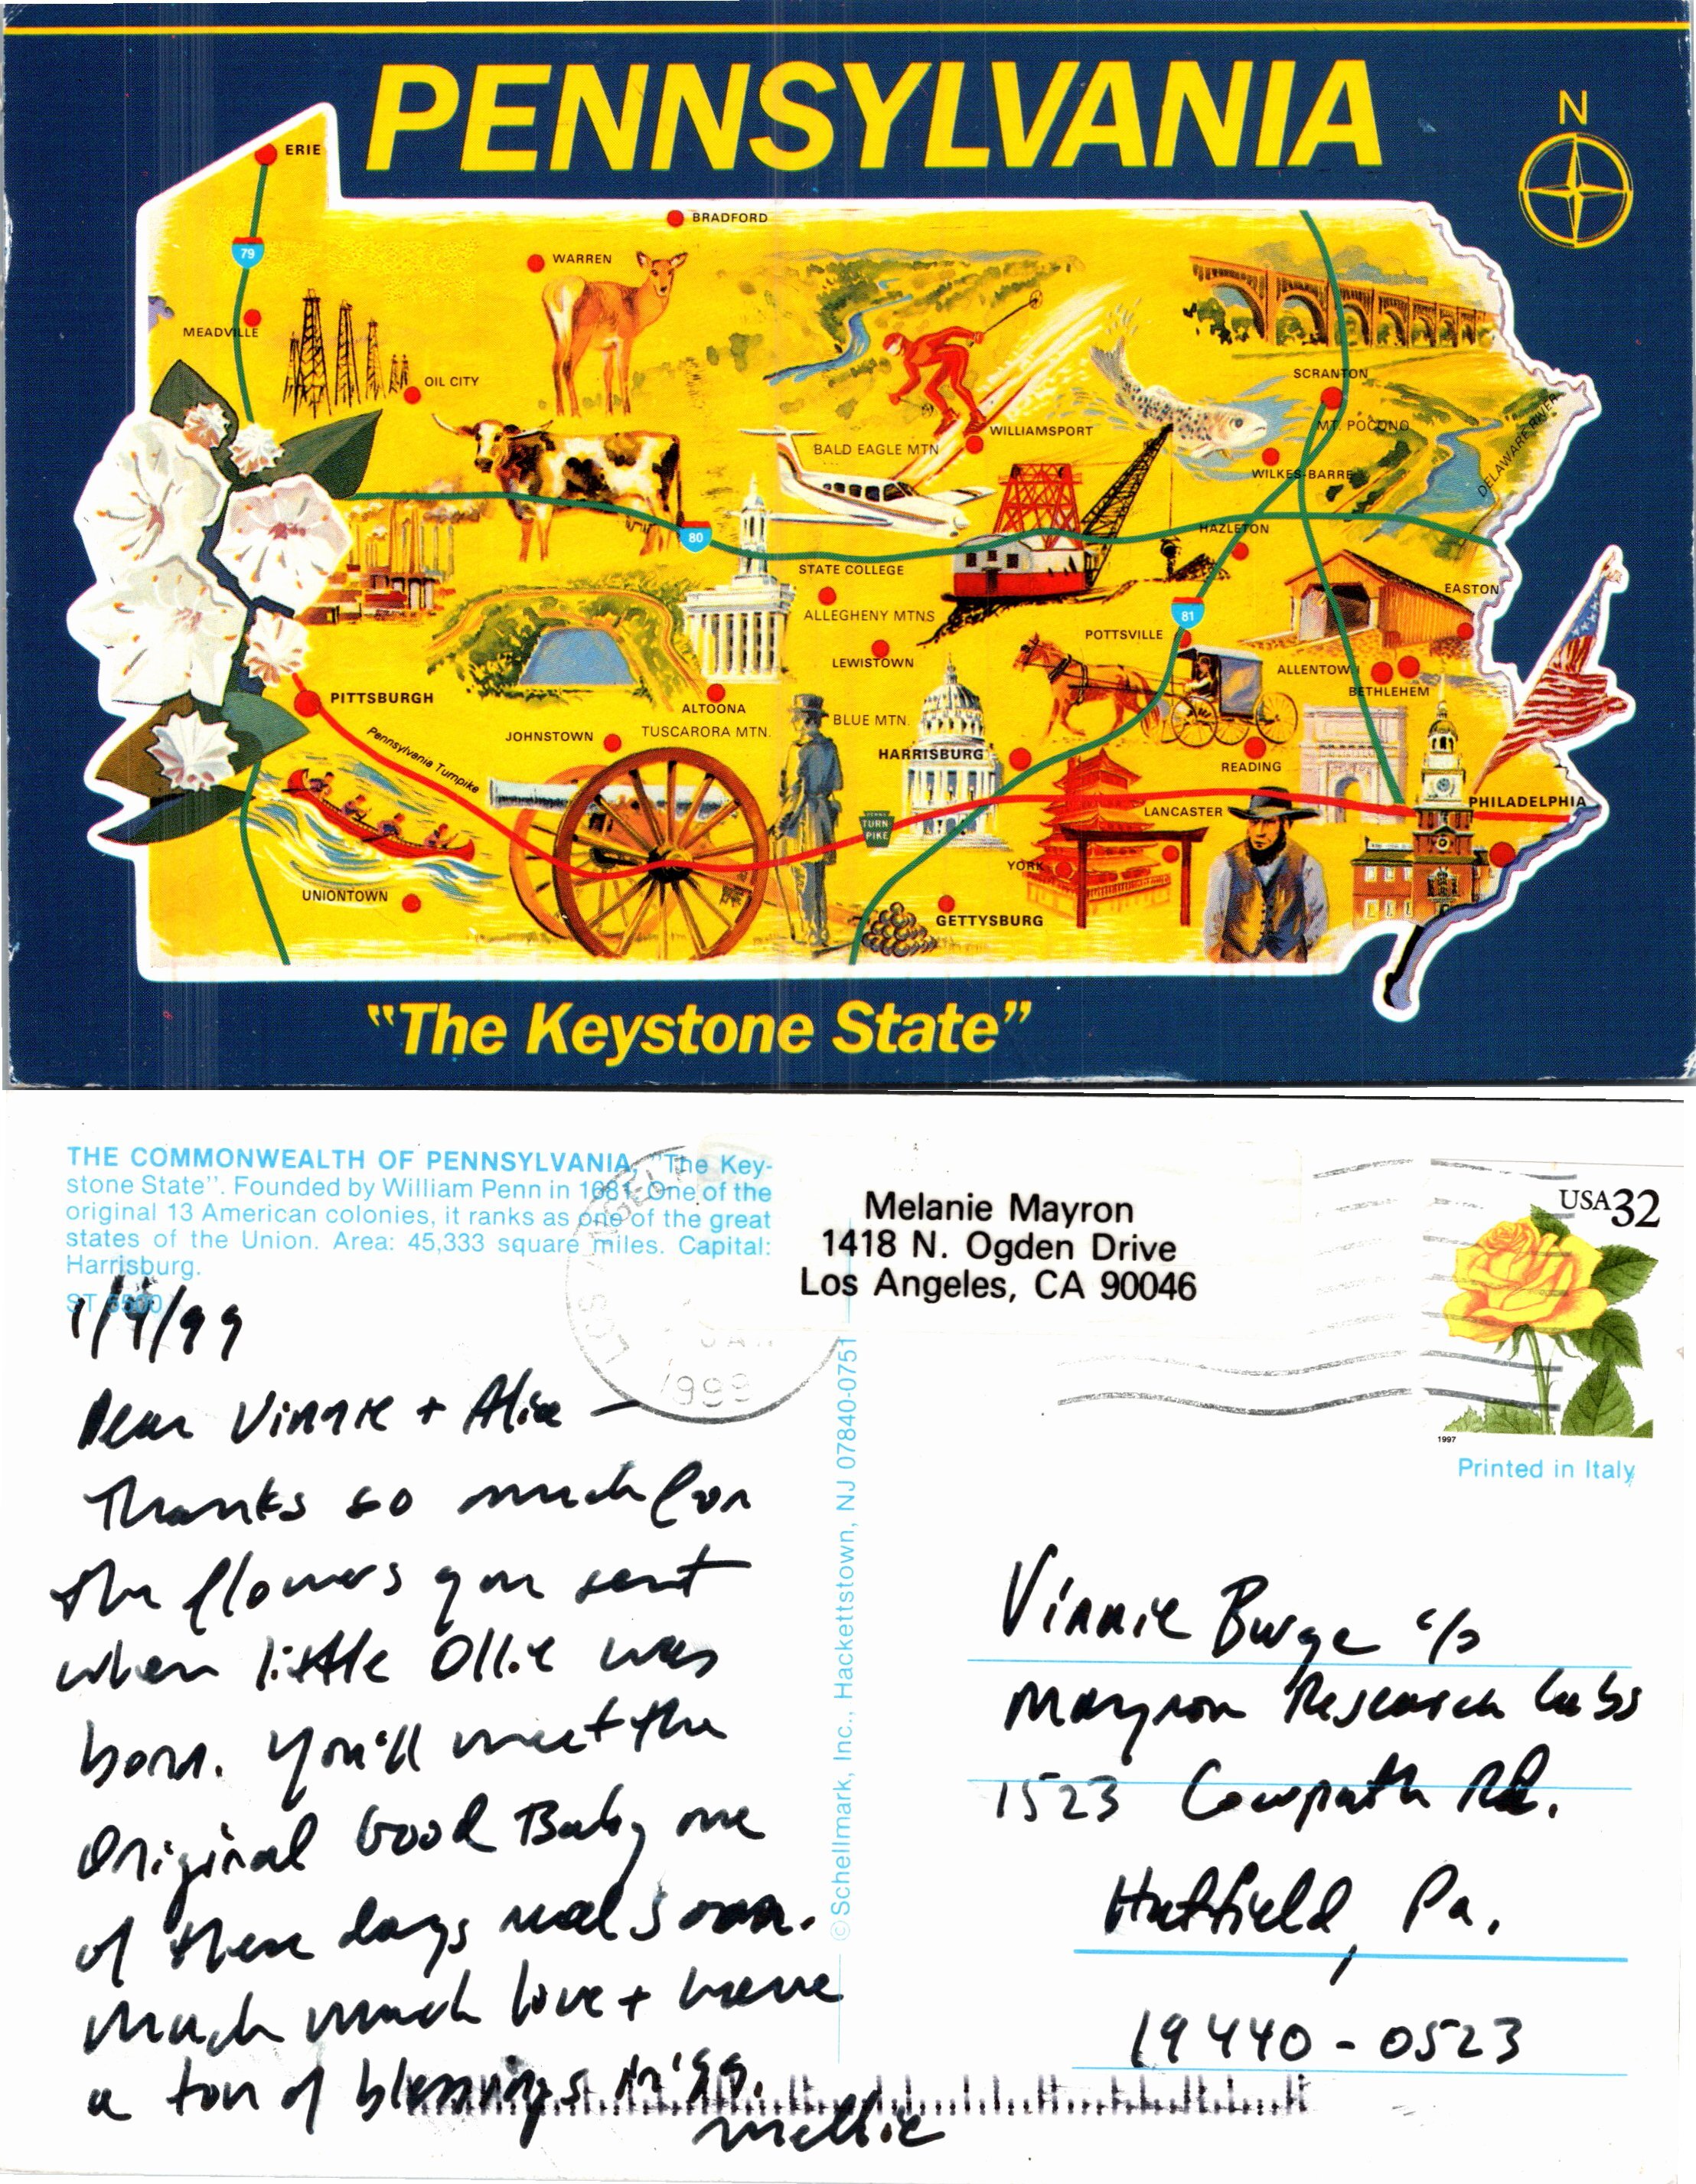 PENNSYLVANIA
N
ERIE
BRADFORD
79
WARREN
MEADVILLE
OIL CITY
SCRANTON
WILLIAMSPORT
MT. POCONO
BALD EAGLE MTN
DELAWARE RIVER
WILKES-BARRE
80
HAZLETON
STATE COLLEGE
EASTON
ALLEGHENY MTNS
81
POTTSVILLE
LEWISTOWN
ALLENTOWN
BETHLEHEM
PITTSBURGH
ALTOONA
BLUE MTN.
JOHNSTOWN
TUSCARORA MTN.
Pennsylvania Turnpike
HARRISBURG
READING
PENNA
TURN
PIKE
LANCASTER
PHILADELPHIA
YORK
UNIONTOWN
GETTYSBURG
"The Keystone State"
THE COMMONWEALTH OF PENNSYLVANIA, "The Key-
stone State". Founded by William Penn in 1681. One of the
original 13 American colonies, it ranks as one of the great
states of the Union. Area: 45,333 square miles. Capital:
Harrisburg.
ST 5500
LOS ANGELES
1999
Melanie Mayron
1418 N. Ogden Drive
Los Angeles, CA 90046
USA 32
1997
Printed in Italy
© Schellmark, Inc., Hackettstown, NJ 07840-0751
Dear Vinnie + Alice —
Thanks so much for
the flowers you sent
when little Ollie was
born. You'll meet the
Original Good Baby one
of these days real soon.
Much much love + have
a ton of blessings in '99.
Mellie
Vinnie Burge c/o
Mayron Research Labs
1523 Cowpath Rd.
Hatfield, Pa.
19440-0523